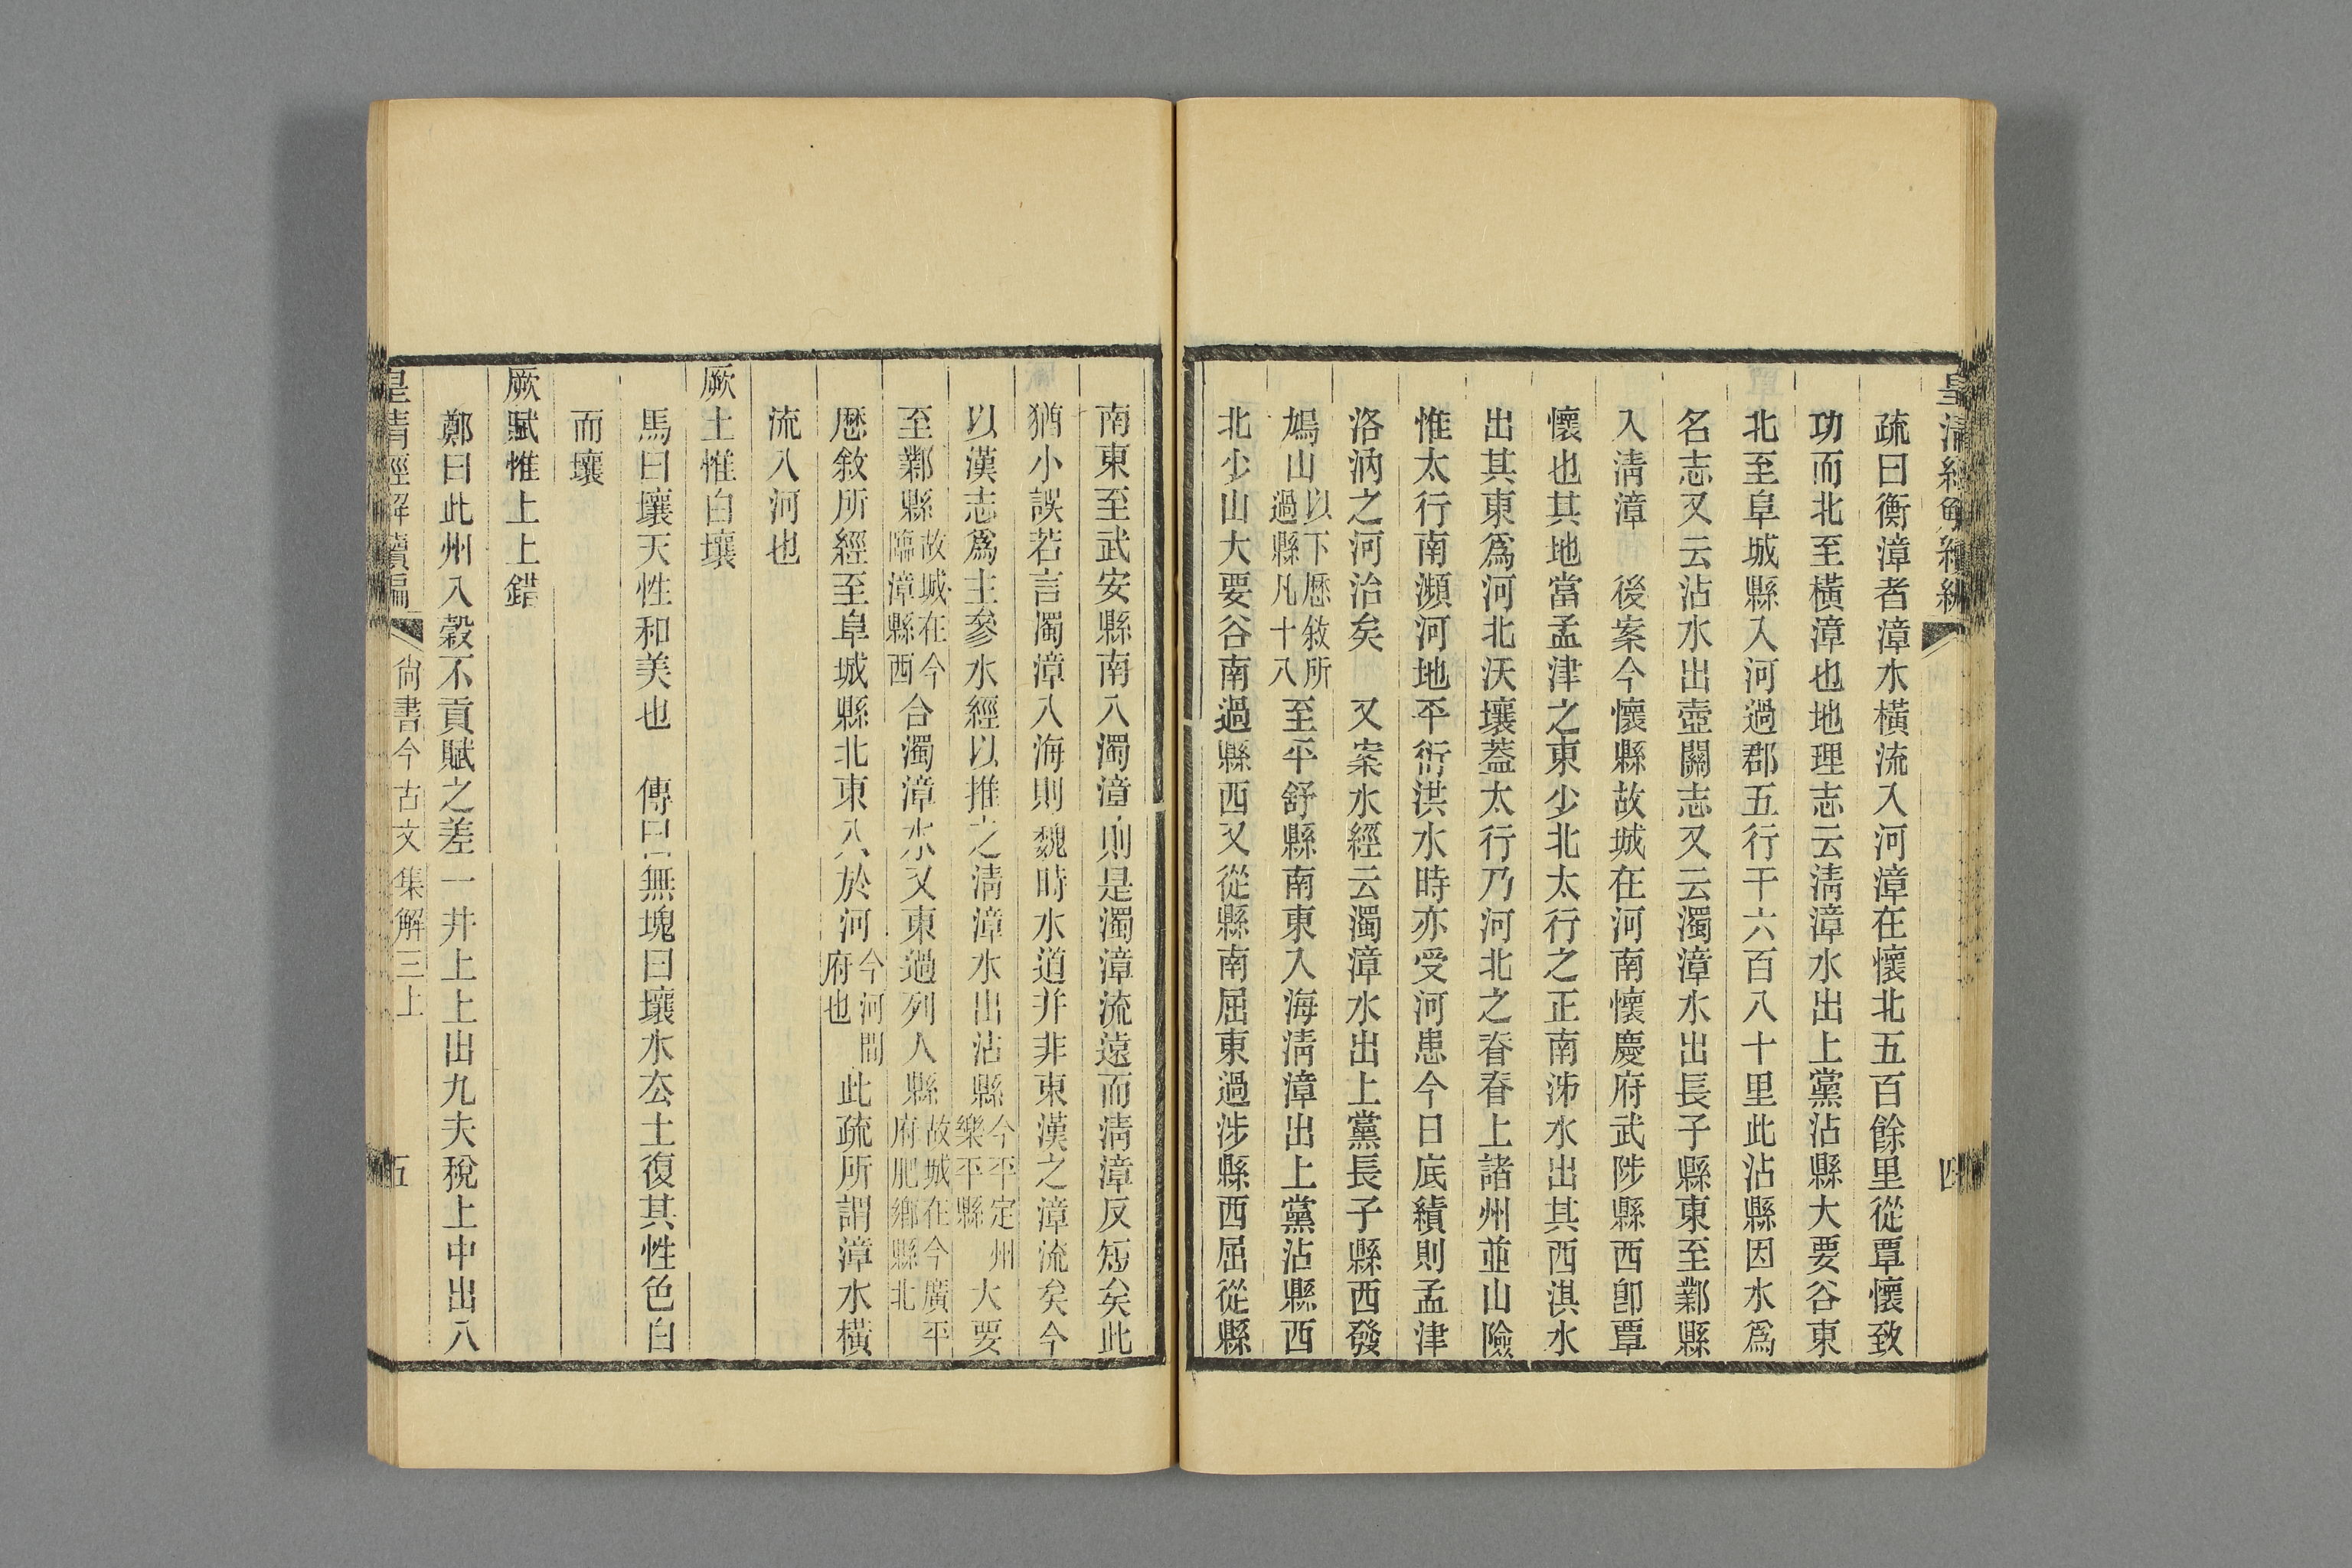 皇清經解續編
四
疏曰衡漳者漳水橫流入河漳在懷北五百餘里從覃懷致
功而北至橫漳也地理志云淸漳水出上黨沾縣大要谷東
北至阜城縣入河過郡五行千六百八十里此沾縣因水爲
名志又云沾水出壺關志又云濁漳水出長子縣東至鄴縣
入淸漳　後案今懷縣故城在河南懷慶府武陟縣西卽覃
懷也其地當孟津之東少北太行之正南泲水出其西淇水
出其東爲河北沃壤蓋太行乃河北之脊脊上諸州並山險
惟太行南瀕河地平衍洪水時亦受河患今日底績則孟津
洛汭之河治矣　又案水經云濁漳水出上黨長子縣西發
鳩山以下歴敘所過縣凡十八至平舒縣南東入海淸漳出上黨沾縣西
北少山大要谷南過縣西又從縣南屈東過涉縣西屈從縣
南東至武安縣南入濁漳則是濁漳流遠而淸漳反短矣此
猶小誤若言濁漳入海則魏時水道并非東漢之漳流矣今
以漢志爲主參水經以推之淸漳水出沾縣今平定州樂平縣大要
至鄴縣故城在今臨漳縣西合濁漳水又東過列人縣故城在今廣平府肥鄉縣北
歴敘所經至阜城縣北東入於河今河間府也此疏所謂漳水橫
流入河也
厥土惟白壤
馬曰壤天性和美也　傳曰無塊曰壤水厺土復其性色白
而壤
厥賦惟上上錯
鄭曰此州入穀不貢賦之差一井上上出九夫稅上中出八
皇淸經解續編
尙書今古文集解三上
五